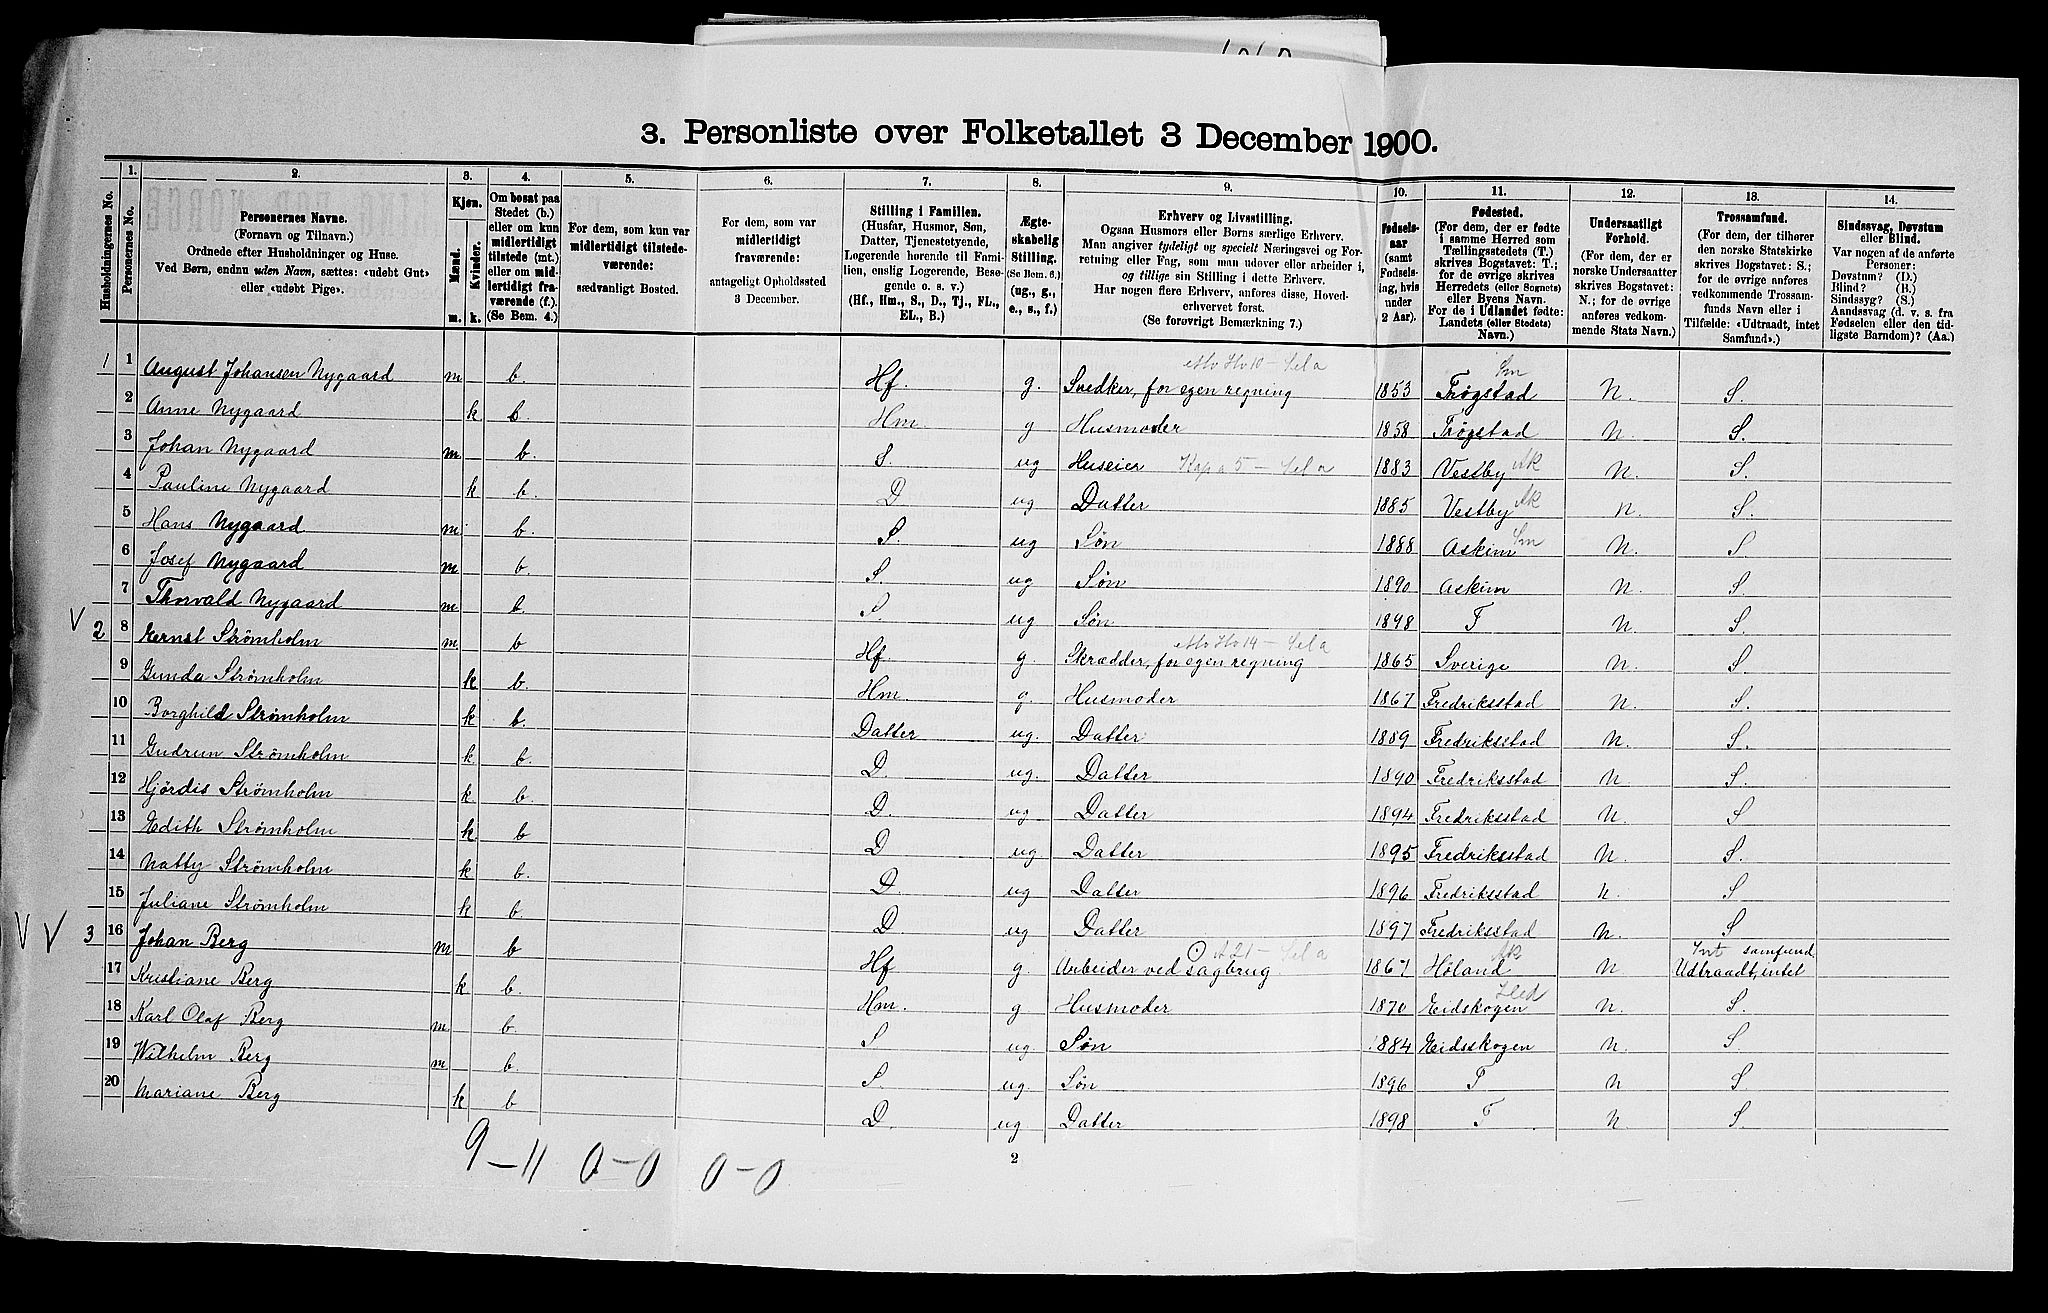 3. Personliste over Folketallet 3 December 1900.
Husholdningernes No.
1.
Personernes No.
2.
Personernes Navne.
(Fornavn og Tilnavn.)
Ordnede efter Husholdninger og Huse.
Ved Børn, endnu uden Navn, sættes: «udøbt Gut»
eller «udøbt Pige».
3.
Kjøn.
Mænd.
Kvinder.
m. k.
4.
Om bosat paa
Stedet (b.)
eller om kun
midlertidigt
tilstede (mt.)
eller om mid-
lertidigt fra-
værende (f.).
(Se Bem. 4.)
5.
For dem, som kun var
midlertidigt tilstede-
værende:
sædvanligt Bosted.
6.
For dem, som var
midlertidigt
fraværende:
antageligt Opholdssted
3 December.
7.
Stilling i Familien.
(Husfar, Husmor, Søn,
Datter, Tjenestetyende,
Logerende hørende til Fami-
lien, enslig Logerende, Besø-
gende o. s. v.)
(Hf., Hm., S., D., Tj., FL.,
EL., B.)
8.
Ægte-
skabelig
Stilling.
(Se Bem. 6.)
(ug., g.,
e., s., f.)
9.
Erhverv og Livsstilling.
Ogsaa Husmors eller Børns særlige Erhverv.
Man angiver tydeligt og specielt Næringsvei og For-
retning eller Fag, som man udøver eller arbeider i,
og tillige sin Stilling i dette Erhverv.
Har nogen flere Erhverv, anføres disse, Hoved-
erhvervet forst.
(Se forøvrigt Bemærkning 7.)
10.
Fødsels-
aar
(samt
Fødsels-
dag, hvis
under
2 Aar).
11.
Fødested.
(For dem, der er fødte
i samme Herred som
Tællingsstedets (T.)
skrives Bogstavet: T.;
for de øvrige skrives
Herredets (eller Sognets)
eller Byens Navn.
For de i Udlandet fødte:
Landets (eller Stedets)
Navn.)
12.
Undersaatligt
Forhold.
(For dem, der er
norske Undersaatter
skrives Bogstavet:
N.; for de øvrige
anføres vedkom-
mende Stats Navn.)
13.
Trossamfund.
(For dem, der tilhører
den norske Statskirke
skrives Bogstavet: S.;
for de øvrige anføres
vedkommende Trossam-
funds Navn eller i
Tilfælde: «Udtraadt, intet
Samfund».)
14.
Sindssvag, Døvstum
eller Blind.
Var nogen af de anførte
Personer:
Døvstum? (D.)
Blind? (B.)
Sindssyg? (S.)
Aandssvag (d. v. s. fra
Fødselen eller den tid-
ligste Barndom)? (Aa.)
1 1 August Johansen Nygaard m b. Hf. g. Svedker, for egen regning 1853 Trøgstad Sm N. S.
2 Anne Nygaard k b. Hm. g Husmoder 1858 Trøgstad N. S.
3 Johan Nygaard m. b. S. ug Huseier 1883 Vestby Ak N. S.
4 Pauline Nygaard k b. D ug Datter 1885 Vestby Ak N. S.
5 Hans Nygaard m. b. S. ug Søn 1888 Askim Sm N. S
6 Josef Nygaard m b. S. ug Søn 1890 Askim N. S
7 Thorvald Nygaard m b. S. ug Søn 1898 T N. S.
V 2 8 Ernst Strømholm m b Hf g. Skrædder, for egen regning 1865 Sverige N. S
9 Gunda Strømholm k b. Hm g. Husmoder 1867 Fredriksstad N. S.
10 Borghild Strømholm k b. Datter ug. Datter 1889 Fredriksstad N. S.
11 Gudrun Strømholm k b. D. ug. Datter 1890 Fredriksstad N. S.
12 Hjördis Strømholm k. b. D. ug Datter 1894 Fredriksstad N. S
13 Edith Strømholm k. b D ug Datter 1895 Fredriksstad N. S.
14 Natty Strømholm k b. D. ug Datter 1896 Fredriksstad N. S
15 Juliane Strømholm k b. D. ug Datter 1897 Fredriksstad N. S
V V 3 16 Johan Berg m b Hf g. Arbeider ved sagbrug 1867 Høland Ak N Udtraadt, intet samfund
17 Kristiane Berg k b. Hm. g Husmoder 1870 Eidskogen Hed N. S.
18 Karl Olaf Berg m b. S ug. Søn 1884 Eidsskogen N. S.
19 Wilhelm Berg m b. S. ug. Søn 1896 T N S
20 Mariane Berg k b D. ug Datter 1898 T N. S.
9–11 0–0 0–0
2